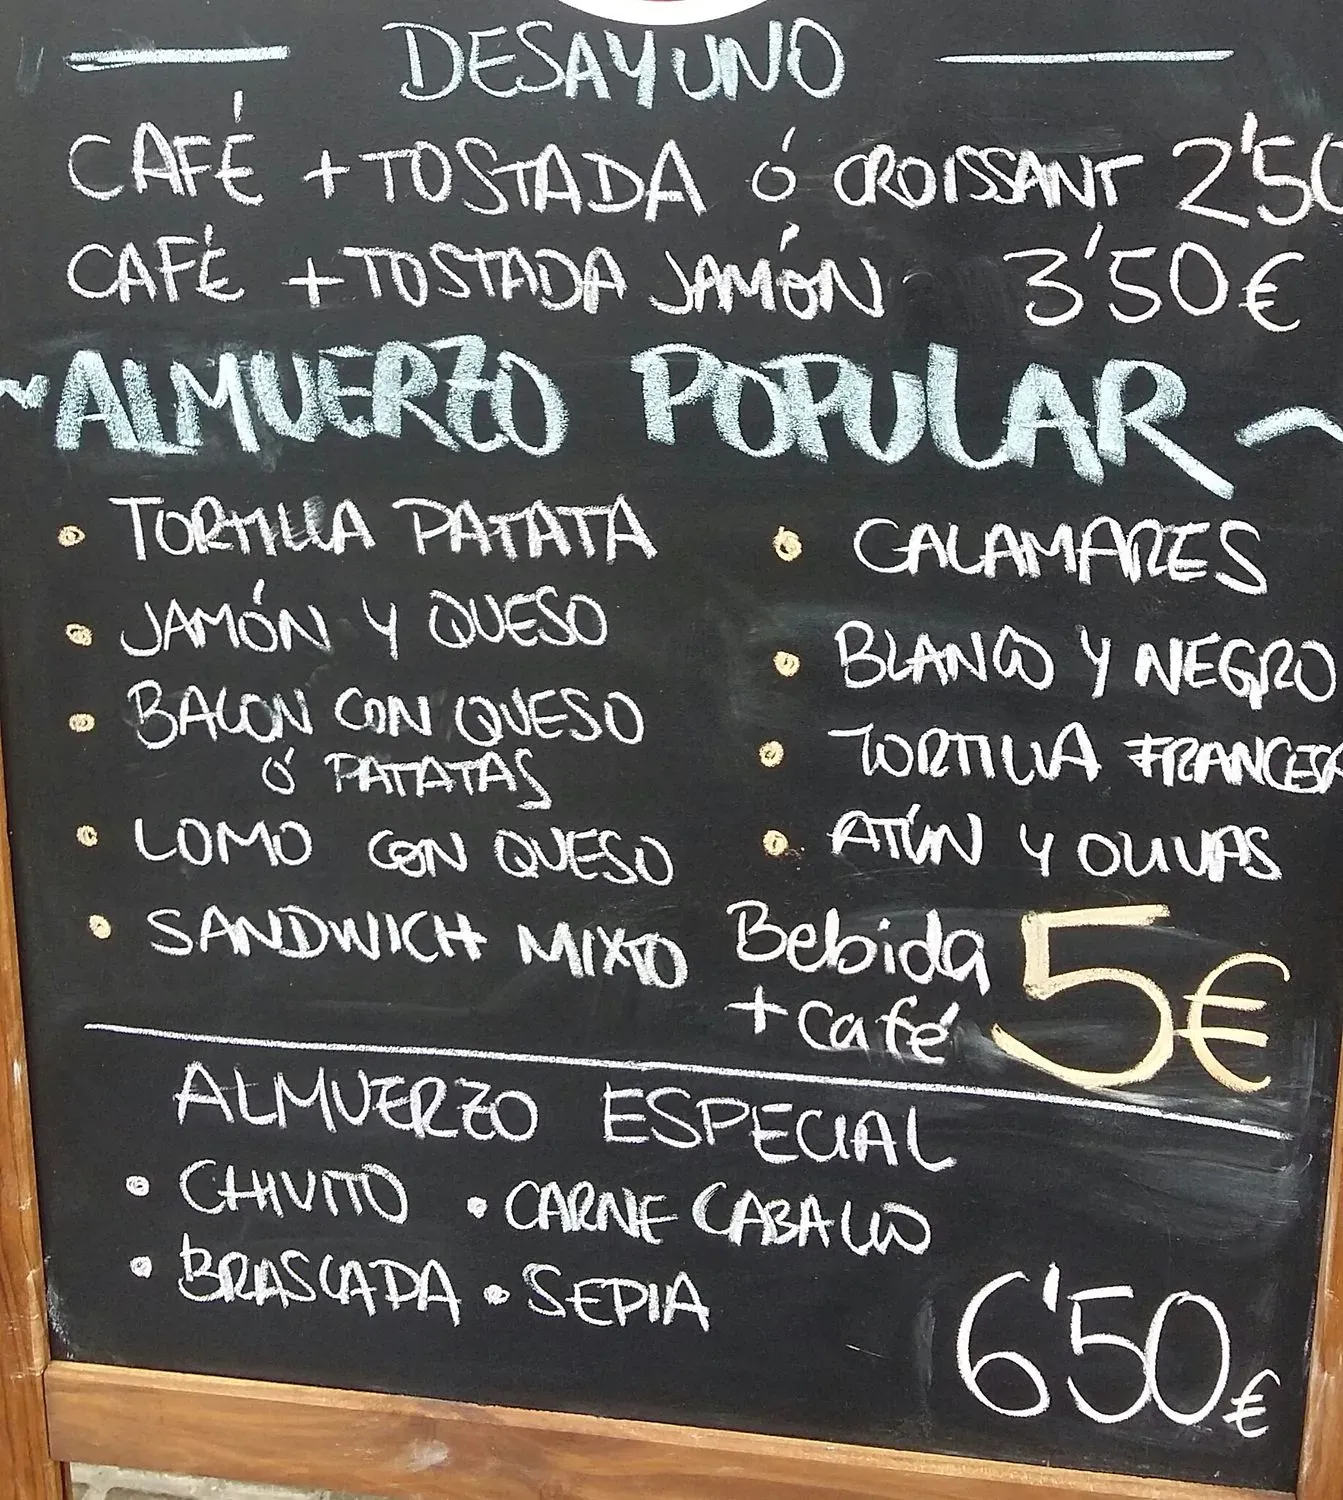 DESAYUNO
CAFÉ + TOSTADA Ó CROISSANT 2'50
CAFÉ + TOSTADA JAMÓN 3'50€
~ALMUERZO POPULAR~
• TORTILLA PATATA
• JAMÓN Y QUESO
• BACON CON QUESO
Ó PATATAS
• LOMO CON QUESO
• SANDWICH MIXTO
• CALAMARES
• BLANCO Y NEGRO
• TORTILLA FRANCESA
• ATÚN Y OLIVAS
Bebida
+ Café 5€
ALMUERZO ESPECIAL
• CHIVITO • CARNE CABALLO
• BRASCADA • SEPIA
6'50€